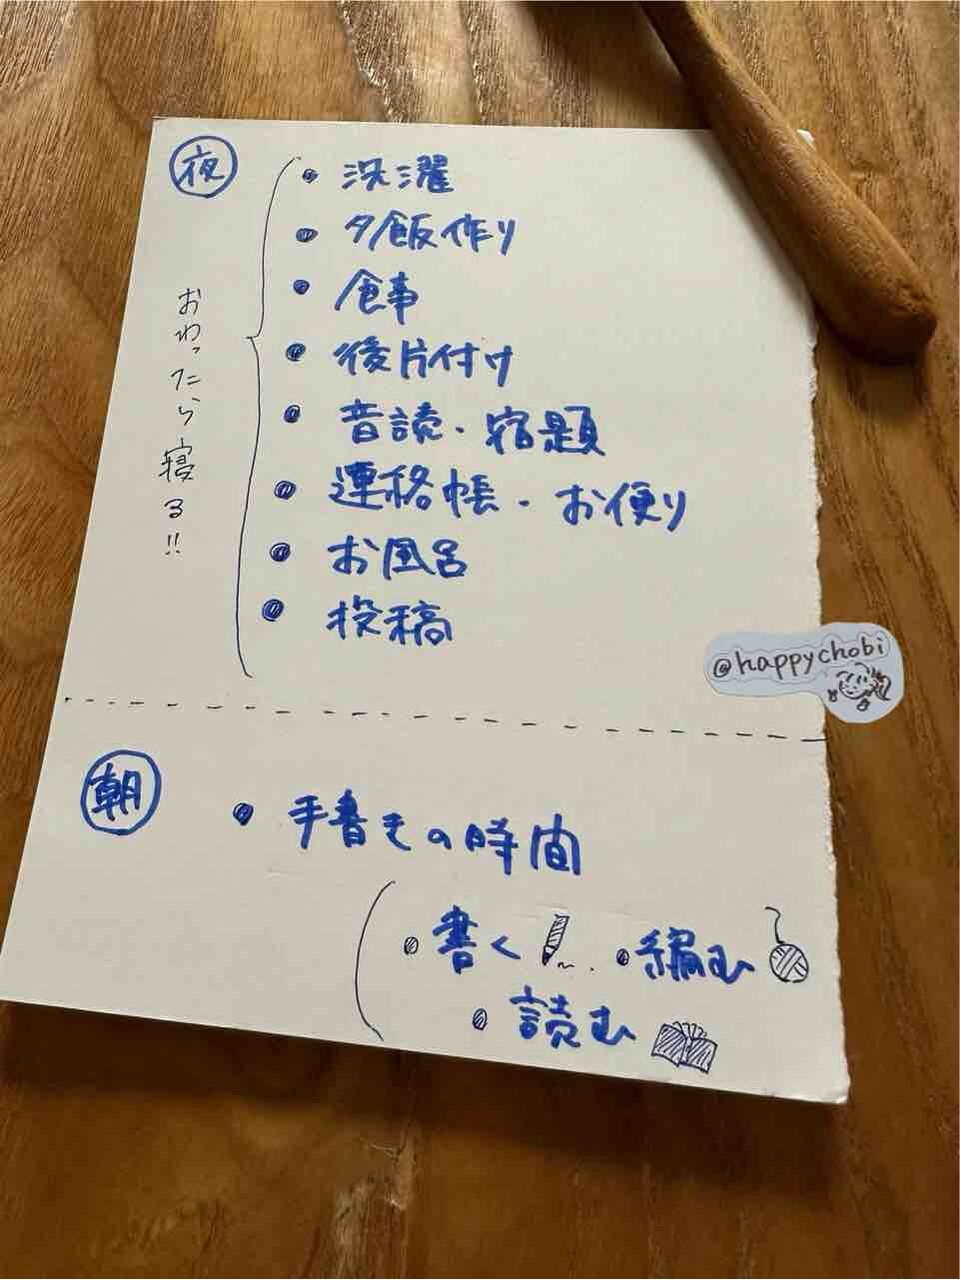 夜
・洗濯
・夕飯作り
・食事
・後片付け
・音読・宿題
・連絡帳・お便り
・お風呂
・投稿
おわったら寝る!!
@happychobi
朝
・手書きの時間
・書く ・編む
・読む